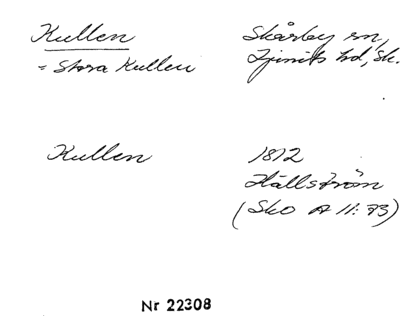 Kullen
= Stora Kullen
Skårby sn,
Ljunits hd, Sk.
Kullen
1812
Hällström
(Sko A 11:73)
Nr 22308